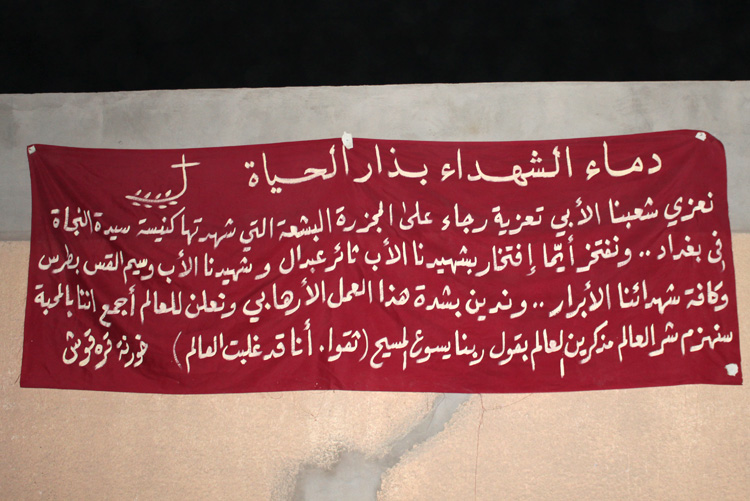 دماء الشهداء بذار الحياة
نعزي شعبنا الأبي تعزية رجاء على المجزرة البشعة التي شهدتها كنيسة سيدة النجاة
في بغداد .. ونفتخر أيّما إفتخار بشهيدنا الأب ثائر عبدال و شهيدنا الأب وسيم القس بطرس
وكافة شهدائنا الأبرار .. وندين بشدة هذا العمل الأرهابي ونعلن للعالم أجمع اننا بالمحبة
سنهزم شر العالم مذكرين العالم بقول ربنا يسوع المسيح (ثقوا. أنا قد غلبت العالم) خورنة قره قوش